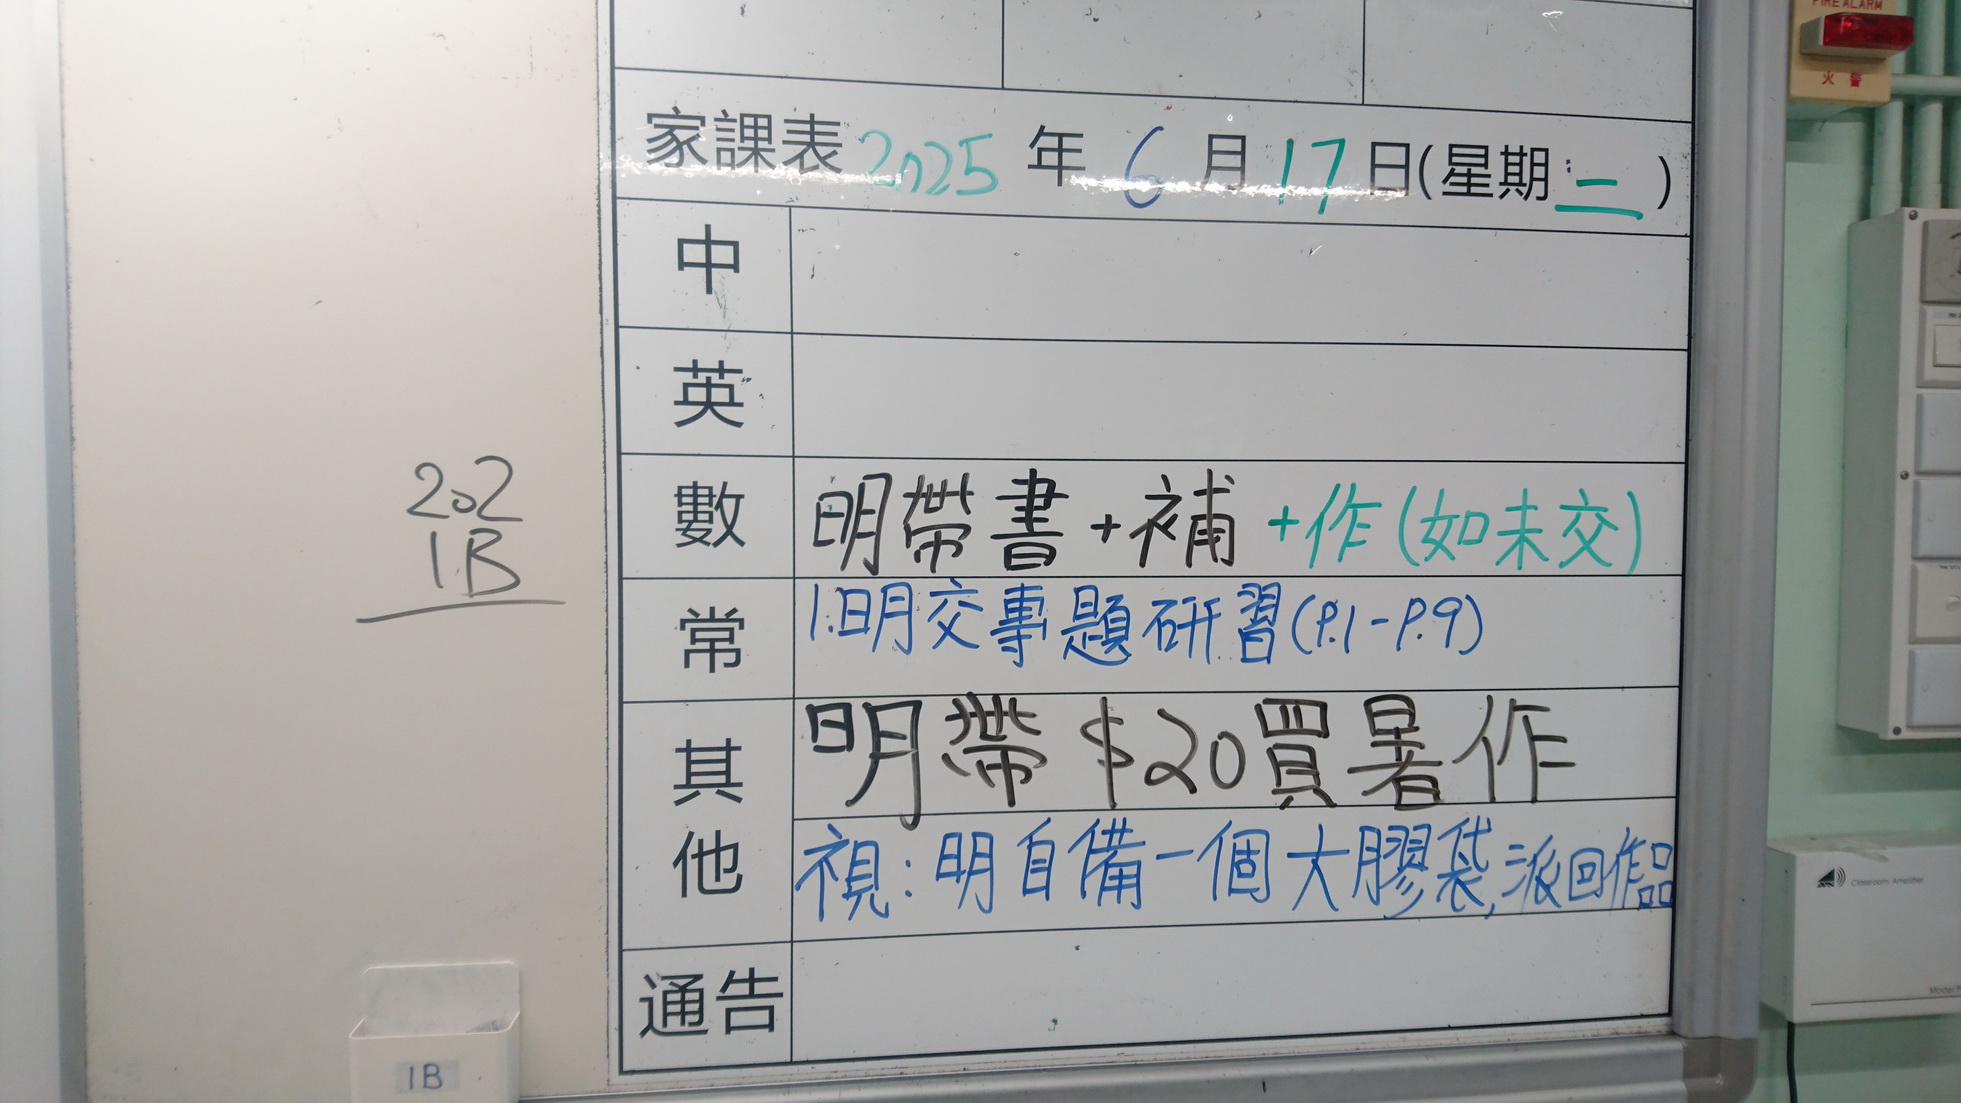 FIRE ALARM
火 警
家課表 2025 年 6 月 17 日(星期二)
中
英
數 明帶書+補+作(如未交)
常 1.明交專題研習(P.1-P.9)
其他 明帶$20買暑作
視:明自備一個大膠袋,派回作品
通告
202
1B
1B
Classroom Amplifier